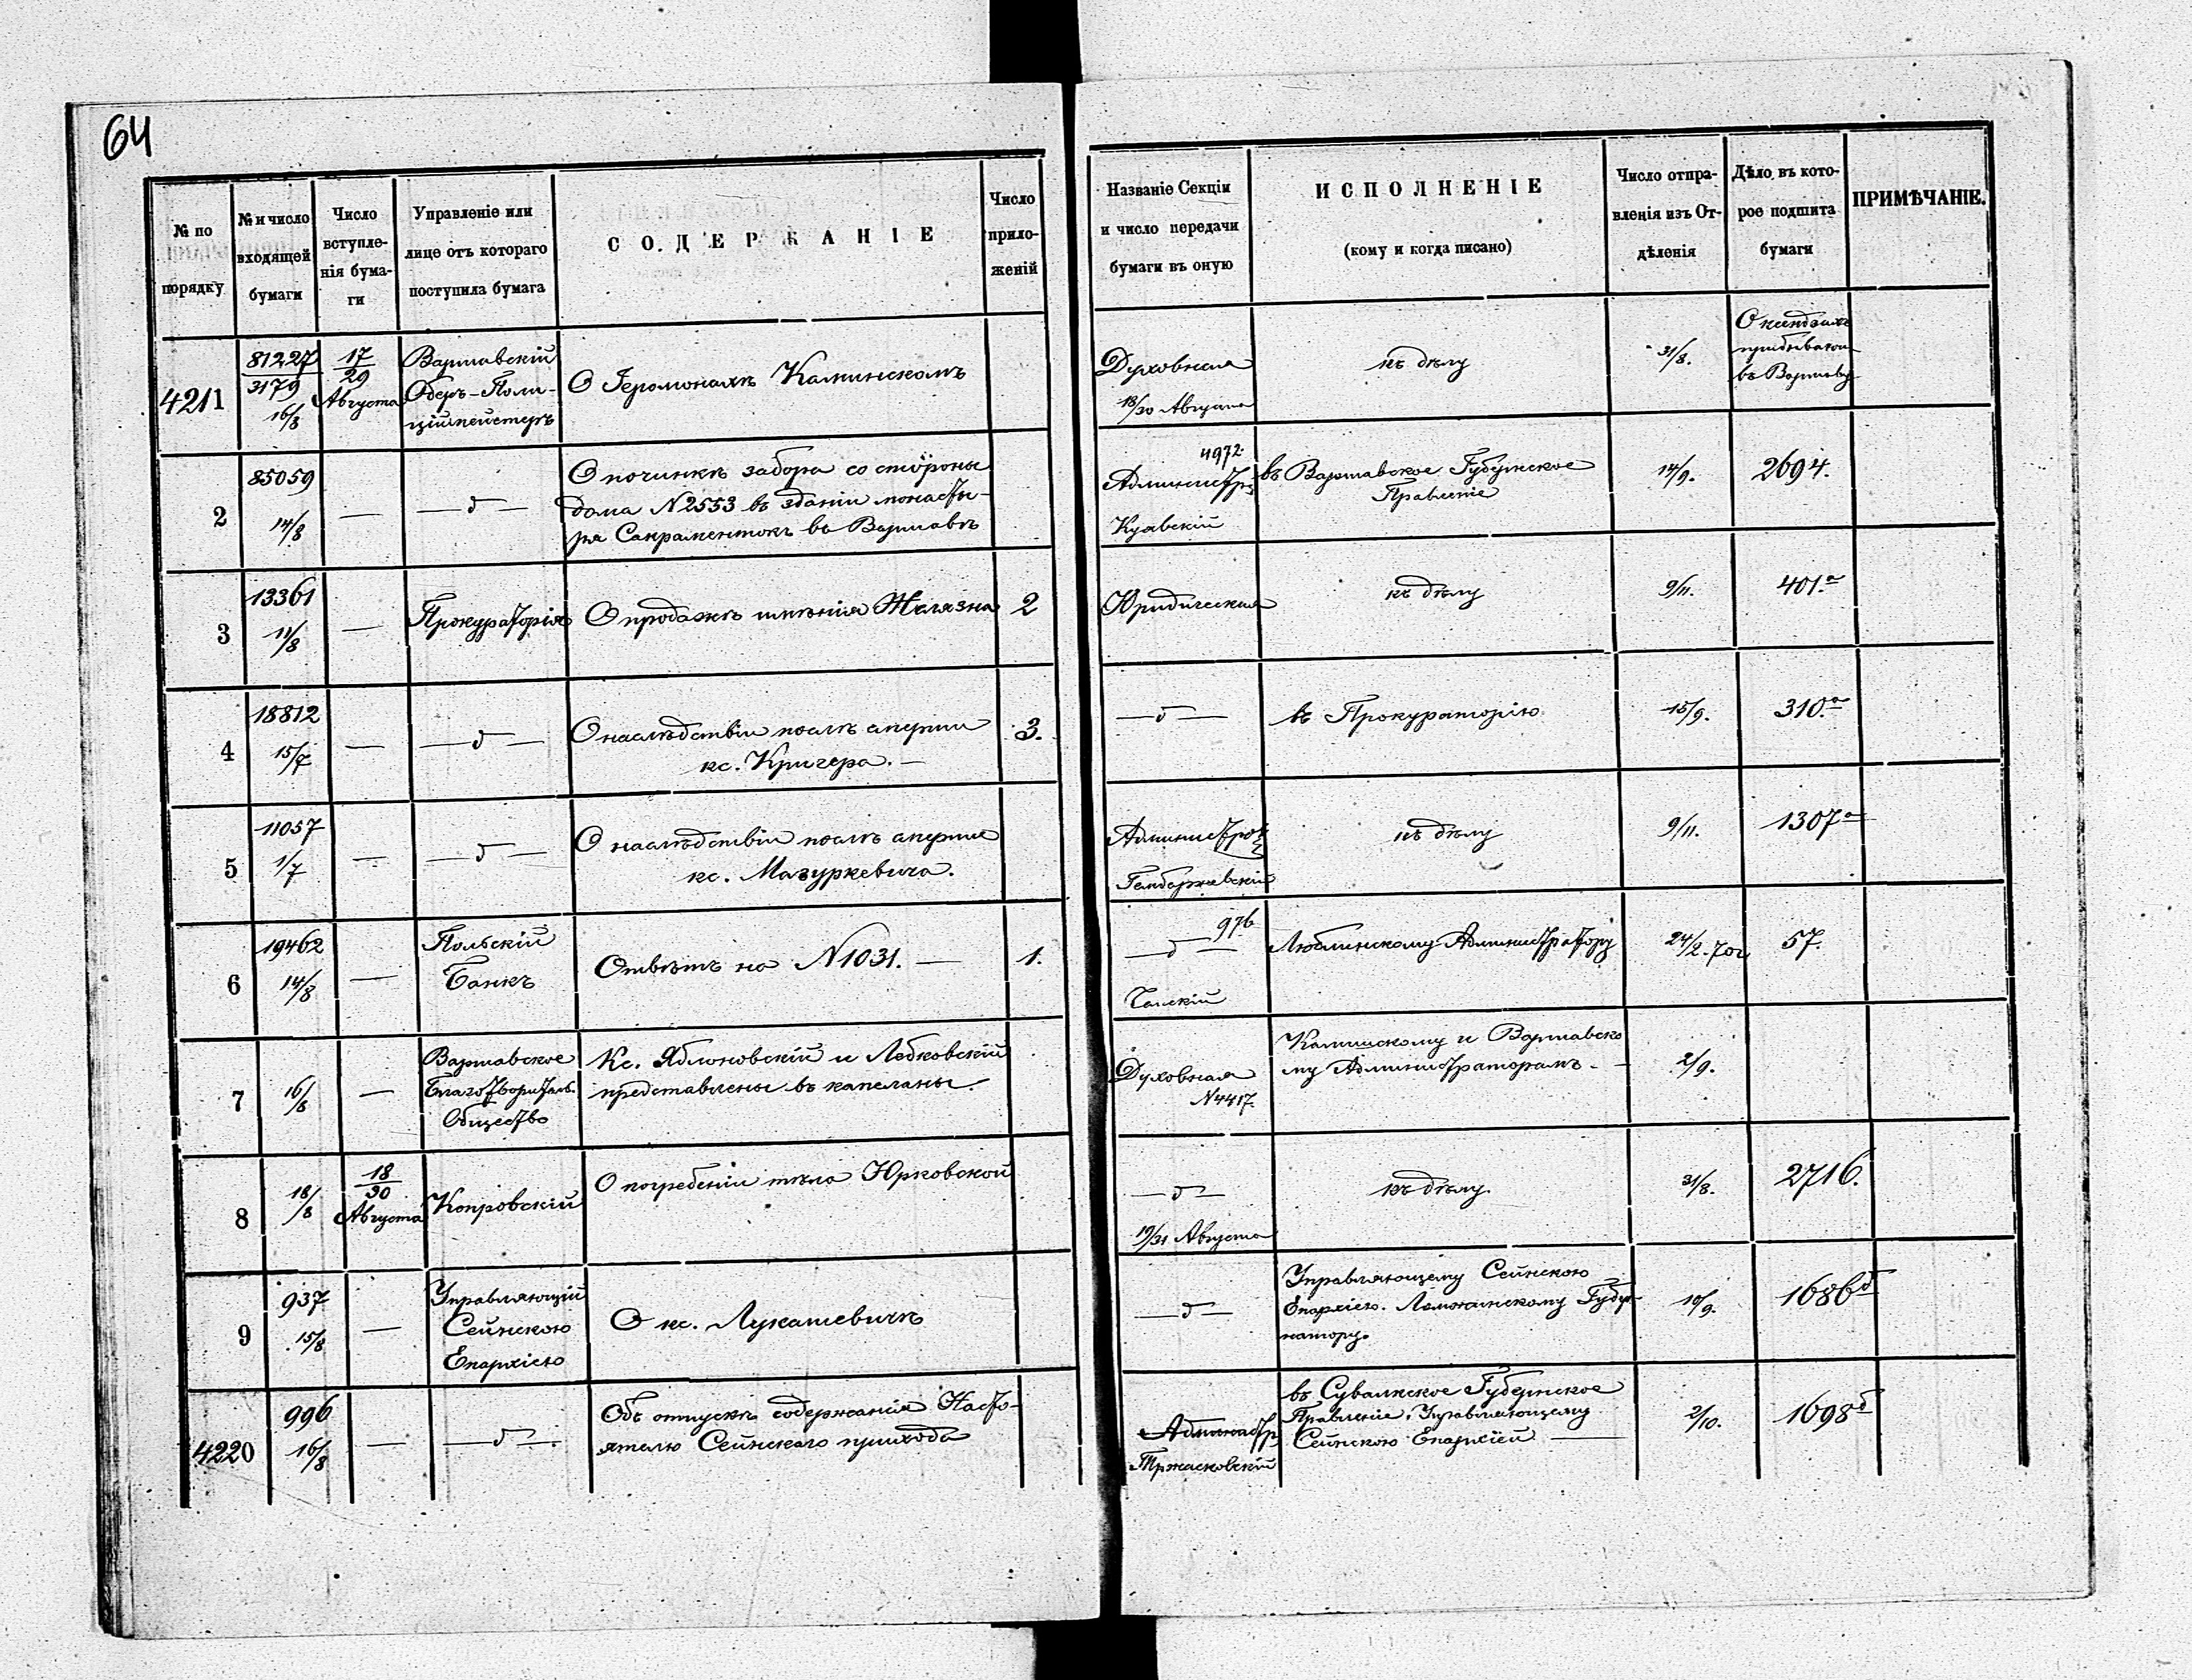 64
№ по порядку
№ и число входящей бумаги
Число вступле-
нія бума-
ги
Управленіе или
лице отъ котораго
поступила бумага
СОДЕРЖАНІЕ
Число
прило-
женій
Названіе Секціи
и число передачи
бумаги въ оную
ИСПОЛНЕНІЕ
(кому и когда писано)
Число отпра-
вленія изъ От-
дѣленія
Дѣло, въ кото-
рое подшита
бумаги
ПРИМѢЧАНІЕ.
4211
81227
3179
16/8
17/29
Августа
Варшавскій
Оберъ-Поли-
ційместеръ
О Іеромонахѣ Каминскомъ
Духовная
18/30 Августа
къ дѣлу
31/8.
О ксендзахъ
въ Варшаву
2
85059
14/8
—
— д —
О починкѣ забора со стороны
дома N 2553 въ зданіи монасты-
ря Сакраментокъ въ Варшавѣ
4972.
Администр.
Куявскій
въ Варшавское Губернское
Правленіе
14/9.
2694.
3
13361
11/8
—
Прокураторія
О продажѣ имѣнія Желязна
2
Юридическая
къ дѣлу
9/11.
401.а
4
18812
15/7
—
— д —
О наслѣдствіи послѣ смерти
кс. Кригера. —
3.
— д —
въ Прокураторію
15/9.
310.а
5
11057
1/7
—
— д —
О наслѣдствіи послѣ смерти
кс. Мазуркевича.
Администрац
Гемборжевскій
къ дѣлу
9/11.
1307а
6
19462
14/8
—
Польскій
Банкъ
Отвѣтъ на N 1031. —
1.
976
— д —
Люблинскому Администратору
24/2. 70г.
57.
7
16/8
—
Варшавское
Благотворитель.
Общество
Кс. Яблоновскій и Лебковскій
представлены въ капеланы. —
Духовная
N 4417.
Калишскому и Варшавско
му Администраторамъ. —
2/9.
8
18/8
18/30
Августа
Копровскій
О погребеніи тѣла Юрковской
— д —
19/31 Августа
къ дѣлу.
31/8.
2716.
9
937
15/8
—
Управляющій
Сейнскою
Епархіею
О кс. Лукашевичѣ
— д —
Управляющему Сейнскою
Епархіею. Ломжинскому Губер-
натору.
10/9.
1686б
4220
996
16/8
—
— д —.
Объ отпускѣ содержанія Насто-
ятелю Сейнскаго прихода
Администр
Тржасковскій
въ Сувалкское Губернское
Правленіе, Управляющему
Сейнскою Епархіей —
2/10.
1698б